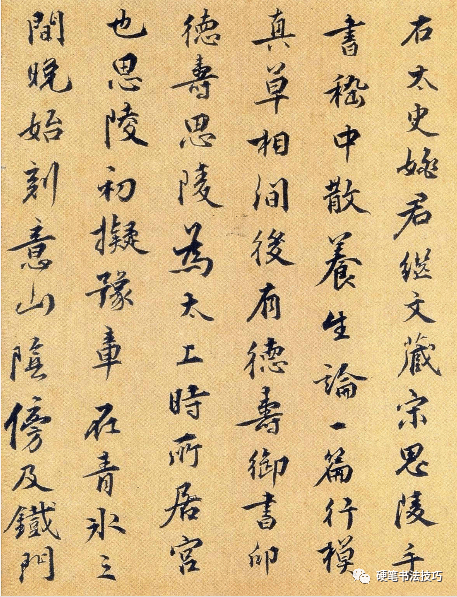 右太史姚君繼文藏宋思陵手
書嵇中散養生論一篇行模
真草相間後有德壽御書印
德壽思陵為太上時所居宮
也思陵初擬豫章在青冰之
間晚始刻意山陰傍及鐵門
硬笔书法技巧